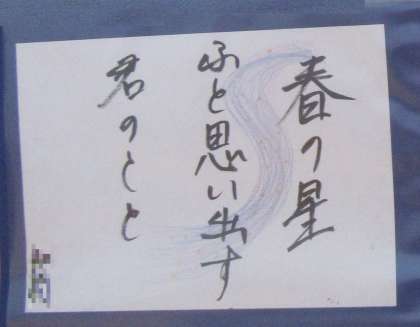 春の星
ふと思い出す
君のこと